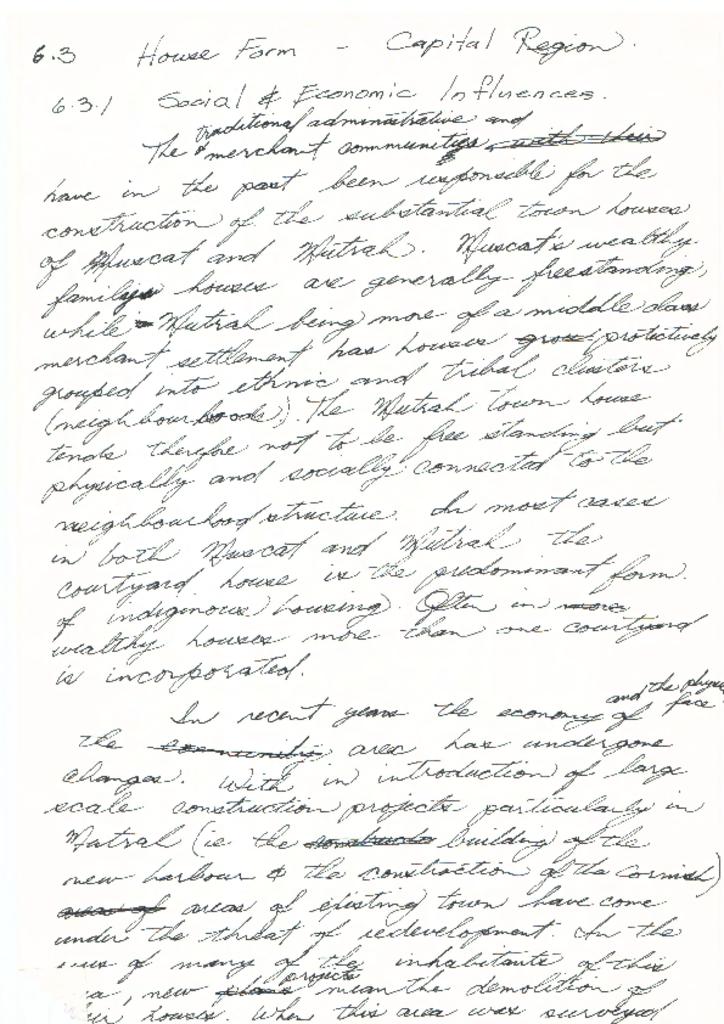 6.3 House Form - Capital Region.
6.3.1 Social & Economic Influences.
traditional administrative and
The & merchant communities, with their
have in the past been responsible for the
construction of the substantial town houses
of Muscat and Mutrah. Muscat's wealthy
family houses are generally freestanding,
while Mutrah being more of a middle class
merchant settlement has houses group protectively
grouped into ethnic and tribal clusters
(neighbourhoods) The Mutrah town house
tends therefore not to be free standing but
physically and socially connected to the
neighbourhood structure. In most cases
in both Muscat and Mutrah the
courtyard house is the predominant form
of indiginous housing. Often in more
wealthy houses more than one courtyard
is incorporated.
and the physical
In recent years the economy of face
the communities area has undergone
changes. With in introduction of large
scale construction projects particularly in
Matrah (ie the construct building of the
new harbour & the construction of the Cornish)
areas of areas of existing town have come
under the threat of redevelopment. In the
of many of the inhabitants of this
projects
new plans mean the demolition of
houses. When this area was surveyed